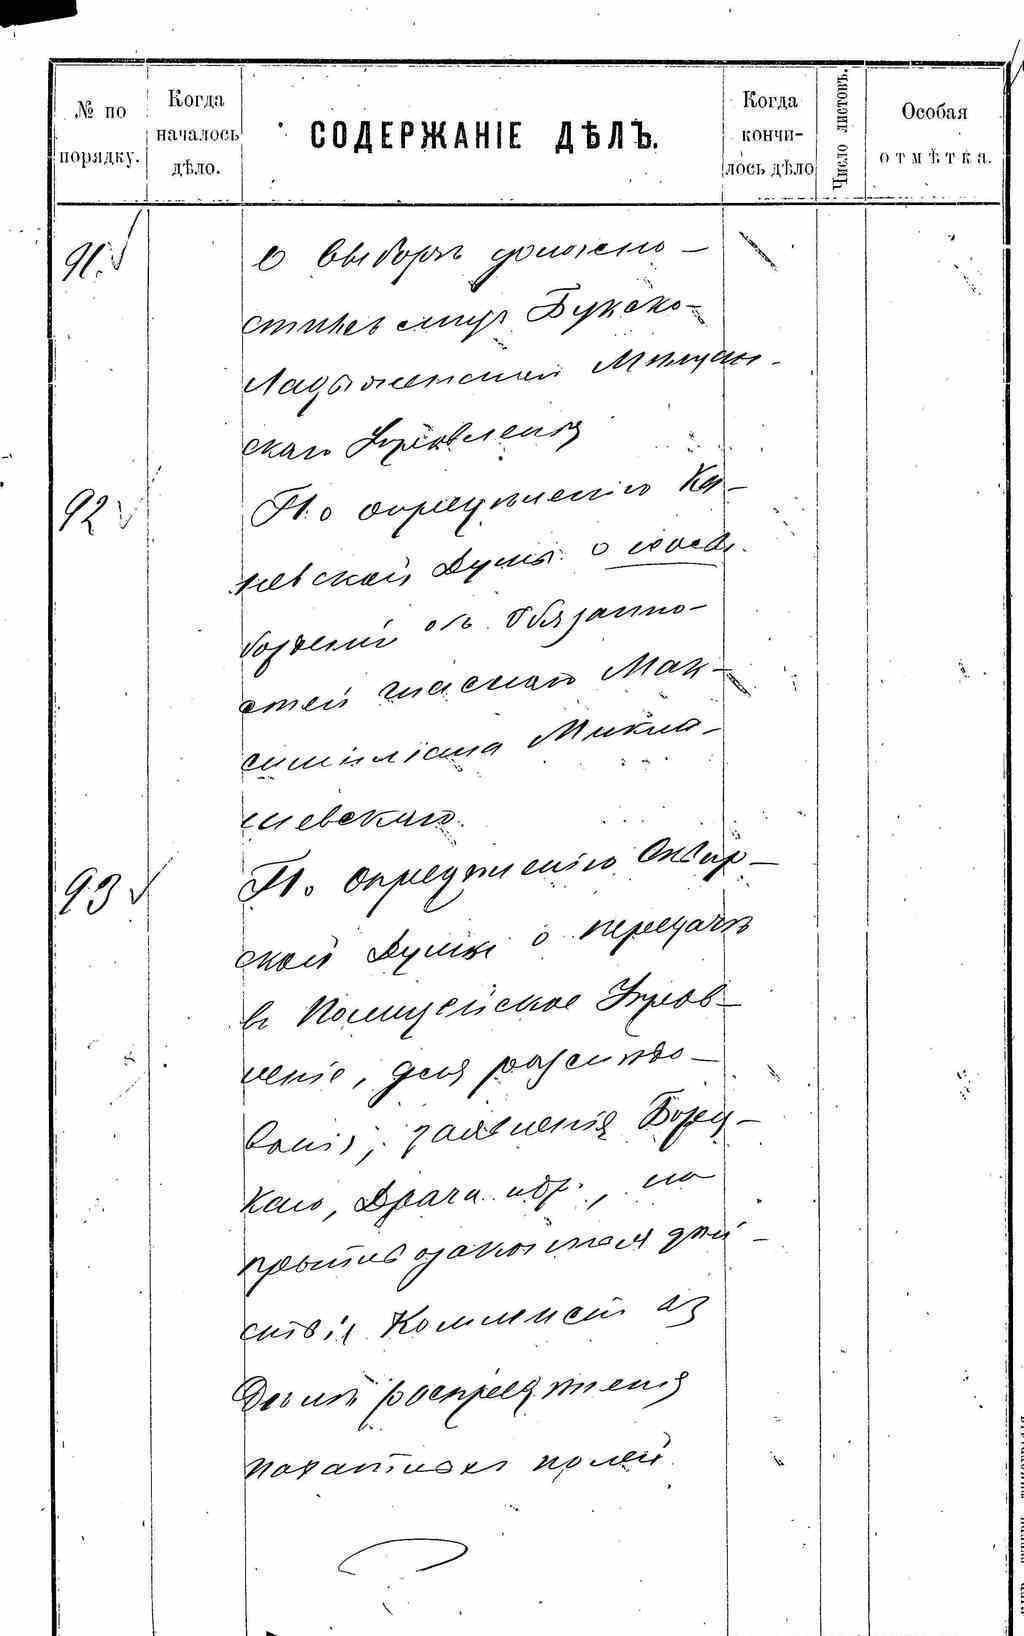 № по порядку.
Когда началось дѣло.
СОДЕРЖАНІЕ ДѢЛЪ.
Когда кончилось дѣло
Число листовъ.
Особая отмѣтка.
91.
О выборѣ должно-
стныхъ лицъ Букско-
Ладыженской Мѣщан-
скаго Управленія
92
По опредѣленію Ка-
невской Думы о освобо-
божденіи отъ обязанно-
стей гласнаго Мак-
симиліана Микла-
шевскаго.
93
По опредѣленію Сквир-
ской Думы о передачѣ
въ Полицейское Управ-
леніе, для разслѣдо-
ванія, заявленія
Драча и др., на
противозаконныя дѣй-
ствія Коммисіи
распредѣленія
пахатныхъ полей